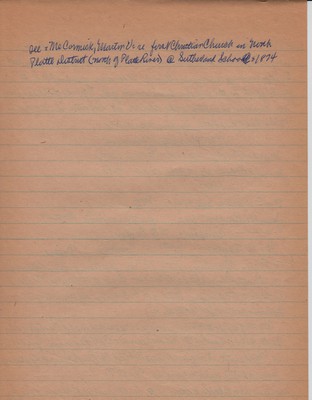 See = McCormick, Martin V. re first Christian Church in North
Platte District (north of Platte River) @ Sutherland School 1874